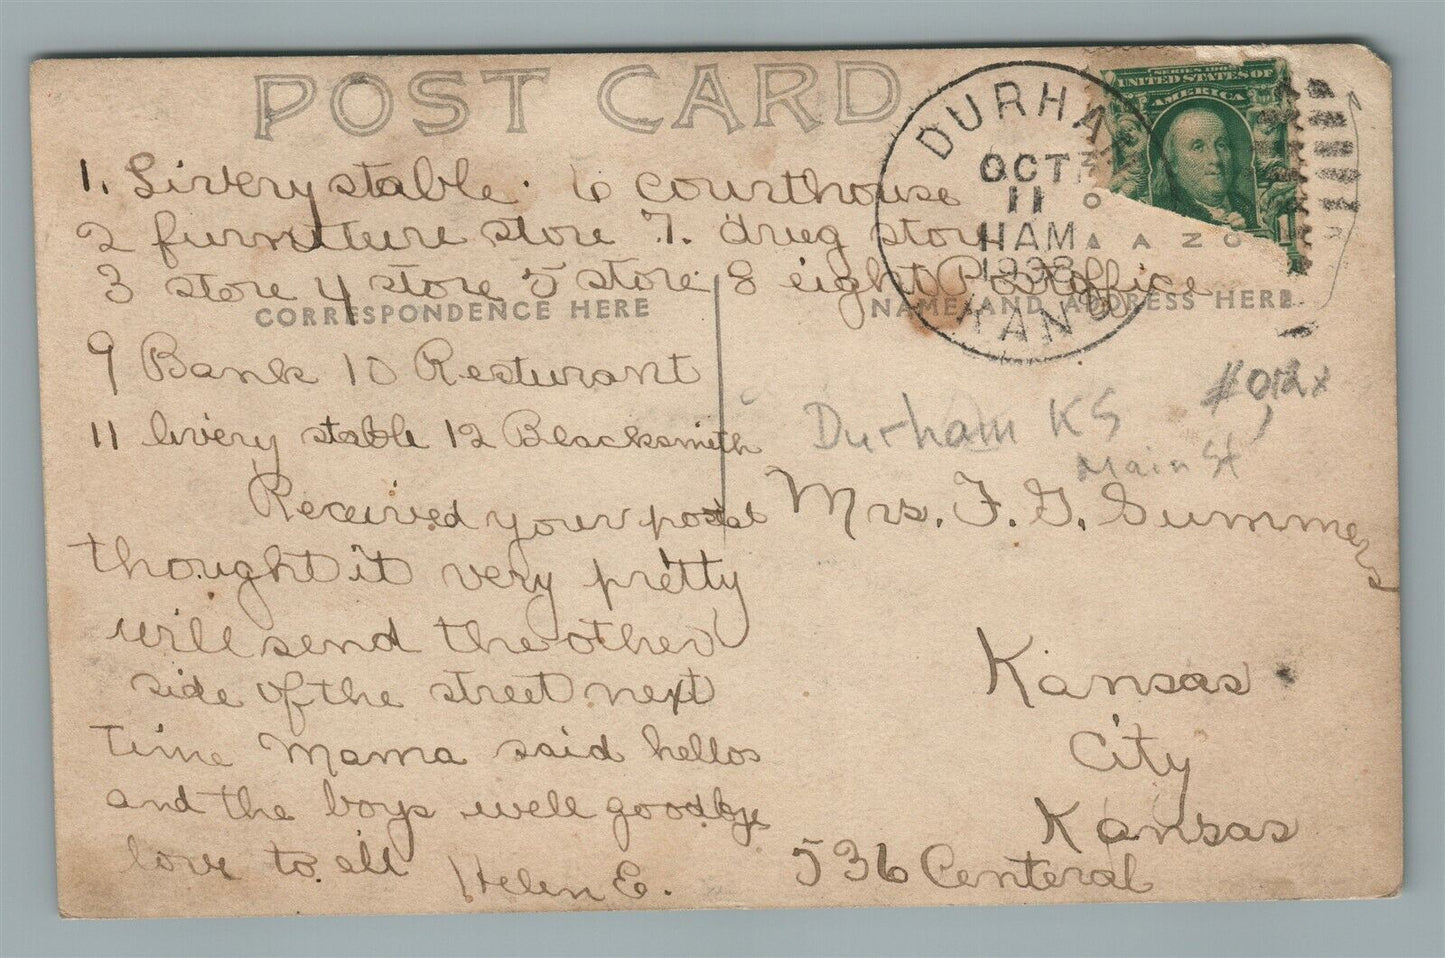 POST CARD
DURHAM
OCT
11
11AM
1908
KANS
SERIES 1902
UNITED STATES OF
AMERICA
1. Livery stable. 6 courthouse
2 furniture store 7. drug store
3 store 4 store 5 store 8 eight Postoffice
CORRESPONDENCE HERE
NAME AND ADDRESS HERE
9 Bank 10 Resturant
11 livery stable 12 Blacksmith
Durham KS
Main St
Received your postal
thought it very pretty
will send the other
side of the street next
time Mama said hellos
and the boys well goodbye
love to all Helen E.
Mrs. F. G. Summers
Kansas
City
Kansas
536 Centeral